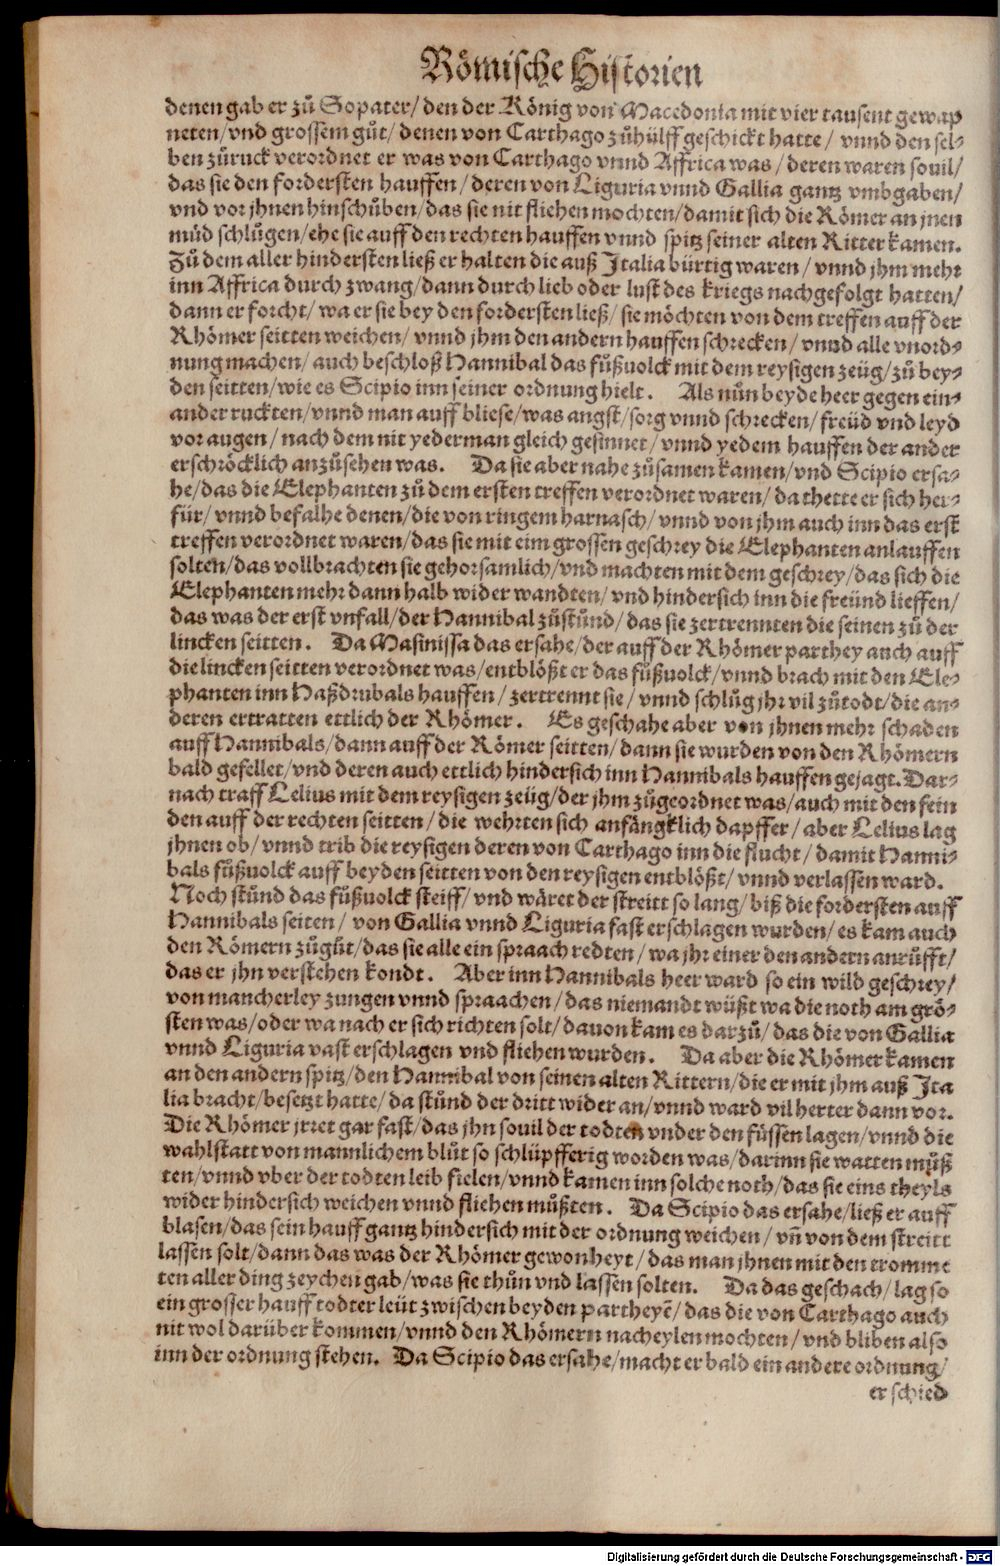 Römische Historien
denen gab er zů Sopater/ den der König von Macedonia mit vier tausent gewap
neten/ vnd grossem gůt/ denen von Carthago zůhülff geschickt hatte/ vnnd den sel-
ben zůruck verordnet er was von Carthago vnnd Affrica was/ deren waren souil/
das sie den fordersten hauffen/ deren von Liguria vnnd Gallia gantz vmbgaben/
vnd vor jhnen hinschůben/ das sie nit fliehen mochten/ damit sich die Römer an jnen
můd schlůgen/ ehe sie auff den rechten hauffen vnnd spitz seiner alten Ritter kamen.
Zů dem aller hindersten ließ er halten die auß Italia bürtig waren/ vnnd jhm mehr
inn Affrica durch zwang/ dann durch lieb oder lust des kriegs nachgefolgt hatten/
dann er forcht/ wa er sie bey den fordersten ließ/ sie möchten von dem treffen auff der
Rhömer seitten weichen/ vnnd jhm den andern hauffen schrecken/ vnnd alle vnord-
nung machen/ auch beschloß Hannibal das fůßuolck mit dem reysigen zeüg/ zů bey-
den seitten/ wie es Scipio inn seiner ordnung hielt. Als nůn beyde heer gegen ein-
ander ruckten/ vnnd man auff bliese/ was angst/ sorg vnnd schrecken/ freüd vnd leyd
vor augen/ nach dem nit yederman gleich gesinnet/ vnnd yedem hauffen der ander
erschröcklich anzůsehen was. Da sie aber nahe zůsamen kamen/ vnd Scipio ersa-
he/ das die Elephanten zů dem ersten treffen verordnet waren/ da thette er sich her-
für/ vnnd befalhe denen/ die von ringem harnasch/ vnnd von jhm auch inn das erst
treffen verordnet waren/ das sie mit eim grossen geschrey die Elephanten anlauffen
solten/ das vollbrachten sie gehorsamlich/ vnd machten mit dem geschrey/ das sich die
Elephanten mehr dann halb wider wandten/ vnd hindersich inn die freünd lieffen/
das was der erst vnfall/ der Hannibal zůstůnd/ das sie zertrennten die seinen zů der
lincken seitten. Da Masinissa das ersahe/ der auff der Rhömer parthey auch auff
die lincken seitten verordnet was/ entblößt er das fůßuolck/ vnnd brach mit den Ele-
phanten inn Haßdrubals hauffen/ zertrennt sie/ vnnd schlůg jhr vil zůtodt/ die an-
deren ertratten ettlich der Rhömer. Es geschahe aber von jhnen mehr schaden
auff Hannibals/ dann auff der Römer seitten/ dann sie wurden von den Rhömern
bald gefellet/ vnd deren auch ettlich hindersich inn Hannibals hauffen gejagt. Dar-
nach traff Lelius mit dem reysigen zeüg/ der jhm zůgeordnet was/ auch mit den fein
den auff der rechten seitten/ die wehrten sich anfängklich dapffer/ aber Lelius lag
jhnen ob/ vnnd trib die reysigen deren von Carthago inn die flucht/ damit Hanni-
bals fůßuolck auff beyden seitten von den reysigen entblößt/ vnnd verlassen ward.
Noch stůnd das fůßuolck steiff/ vnd wäret der streitt so lang/ biß die fordersten auff
Hannibals seiten/ von Gallia vnnd Liguria fast erschlagen wurden/ es kam auch
den Römern zůgůt/ das sie alle ein spraach redten/ wa jhr einer den andern anrůfft/
das er jhn verstehen kondt. Aber inn Hannibals heer ward so ein wild geschrey/
von mancherley zungen vnnd spraachen/ das niemandt wüßt wa die noth am grö-
sten was/ oder wa nach er sich richten solt/ dauon kam es darzů/ das die von Gallia
vnnd Liguria vast erschlagen vnd fliehen wurden. Da aber die Rhömer kamen
an den andern spitz/ den Hannibal von seinen alten Rittern/ die er mit jhm auß Ita
lia bracht/ besetzt hatte/ da stůnd der dritt wider an/ vnnd ward vil herter dann vor.
Die Rhömer jrret gar fast/ das jhn souil der todten vnder den füssen lagen/ vnnd die
wahlstatt von mannlichem blůt so schlüpfferig worden was/ darinn sie watten můß
ten/ vnnd vber der todten leib fielen/ vnnd kamen inn solche noth/ das sie eins theyls
wider hindersich weichen vnnd fliehen můßten. Da Scipio das ersahe/ ließ er auff
blasen/ das sein hauff gantz hindersich mit der ordnung weichen/ vñ von dem streitt
lassen solt/ dann das was der Rhömer gewonheyt/ das man jhnen mit den tromme
ten aller ding zeychen gab/ was sie thůn vnd lassen solten. Da das geschach/ lag so
ein grosser hauff todter leüt zwischen beyden partheyē/ das die von Carthago auch
nit wol darüber kommen/ vnnd den Rhömern nacheylen mochten/ vnd bliben also
inn der ordnung stehen. Da Scipio das ersahe/ macht er bald ein andere ordnung/
er schied
Digitalisierung gefördert durch die Deutsche Forschungsgemeinschaft - DFG